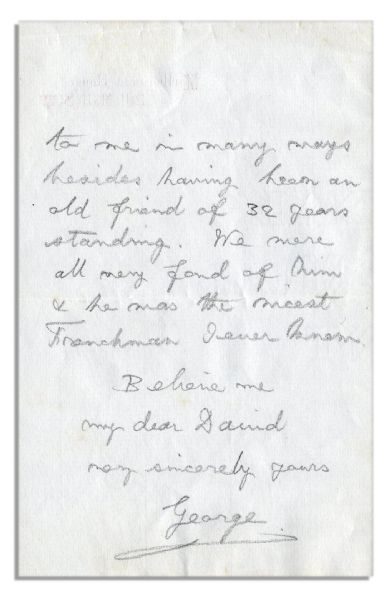 to me in many ways
besides having been an
old friend of 32 years
standing. We were
all very fond of him
& he was the nicest
Frenchman I ever knew.
Believe me
my dear David
very sincerely yours
George